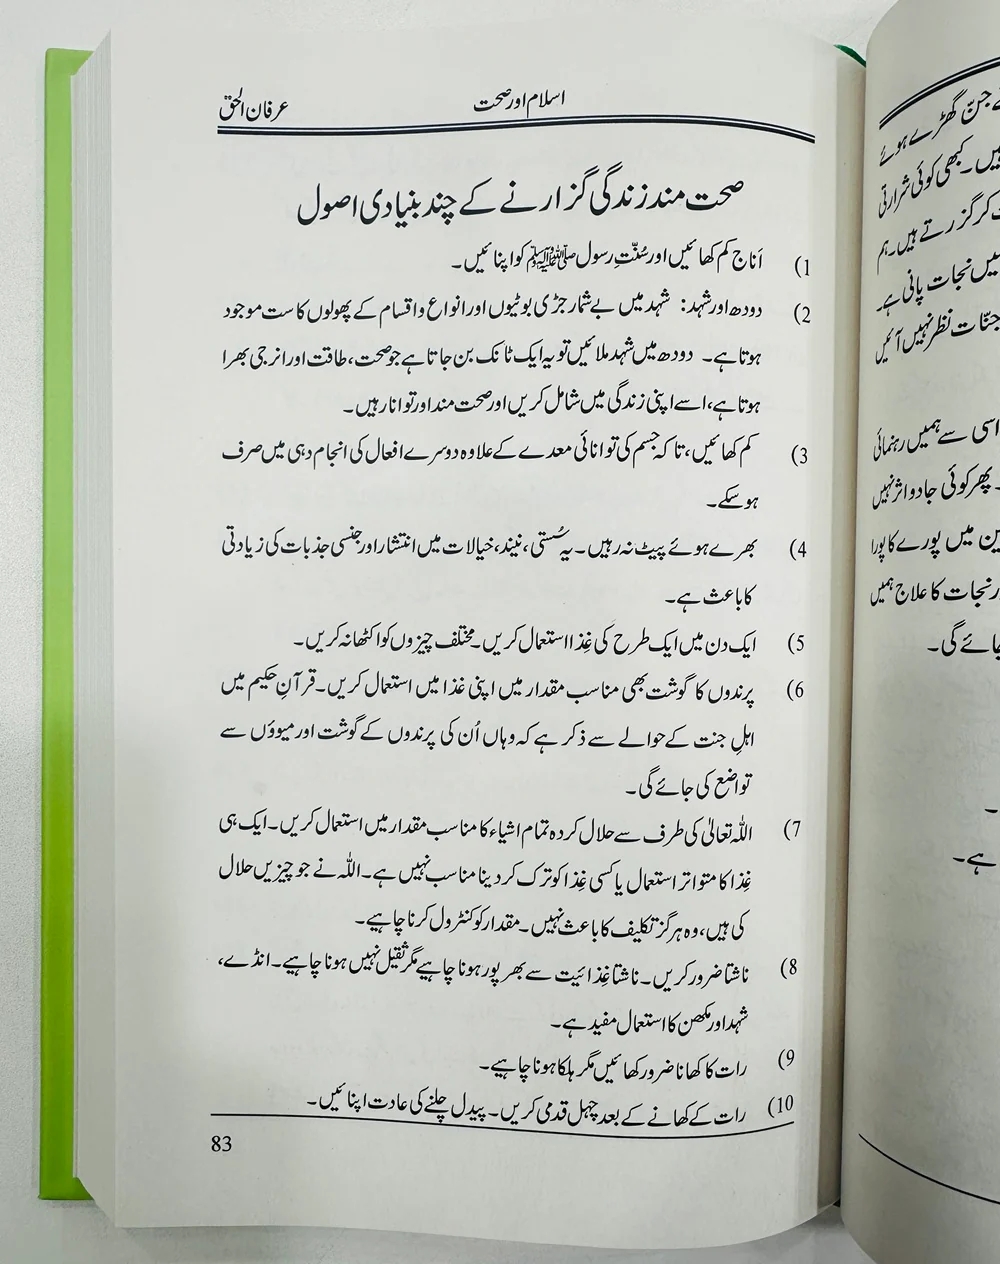 اسلام اور صحت
عرفان الحق
صحت مند زندگی گزارنے کے چند بنیادی اصول
1) اَناج کم کھائیں اور سُنّتِ رسول ﷺ کو اپنائیں۔
2) دودھ اور شہد: شہد میں بے شمار جڑی بوٹیوں اور انواع و اقسام کے پھولوں کا ست موجود
ہوتا ہے۔ دودھ میں شہد ملائیں تو یہ ایک ٹانک بن جاتا ہے جو صحت، طاقت اور انرجی بھرا
ہوتا ہے، اسے اپنی زندگی میں شامل کریں اور صحت مند اور توانا رہیں۔
3) کم کھائیں، تاکہ جسم کی توانائی معدے کے علاوہ دوسرے افعال کی انجام دہی میں صرف
ہو سکے۔
4) بھرے ہوئے پیٹ نہ رہیں۔ یہ سُستی، نیند، خیالات میں انتشار اور جنسی جذبات کی زیادتی
کا باعث ہے۔
5) ایک دن میں ایک طرح کی غِذا استعمال کریں۔ مختلف چیزوں کو اکٹھا نہ کریں۔
6) پرندوں کا گوشت بھی مناسب مقدار میں اپنی غذا میں استعمال کریں۔ قرآنِ حکیم میں
اہلِ جنت کے حوالے سے ذکر ہے کہ وہاں اُن کی پرندوں کے گوشت اور میوؤں سے
تواضع کی جائے گی۔
7) اللہ تعالیٰ کی طرف سے حلال کردہ تمام اشیاء کا مناسب مقدار میں استعمال کریں۔ ایک ہی
غِذا کا متواتر استعمال یا کسی غِذا کو ترک کر دینا مناسب نہیں ہے۔ اللہ نے جو چیزیں حلال
کی ہیں، وہ ہرگز تکلیف کا باعث نہیں۔ مقدار کو کنٹرول کرنا چاہیے۔
8) ناشتا ضرور کریں۔ ناشتا غِذائیت سے بھرپور ہونا چاہیے مگر ثقیل نہیں ہونا چاہیے۔ انڈے،
شہد اور مکھن کا استعمال مفید ہے۔
9) رات کا کھانا ضرور کھائیں مگر ہلکا ہونا چاہیے۔
10) رات کے کھانے کے بعد چہل قدمی کریں۔ پیدل چلنے کی عادت اپنائیں۔
83
جن گھڑے ہوئے
ہیں۔ کبھی کوئی شرارتی
کر گزرتے ہیں۔ ہم
نجات پانی ہے۔
جنّات نظر نہیں آئیں
اسی سے ہمیں رہنمائی
پھر کوئی جادو اثر نہیں
میں پورے کا پورا
نجات کا علاج ہمیں
جائے گی۔
ہے۔